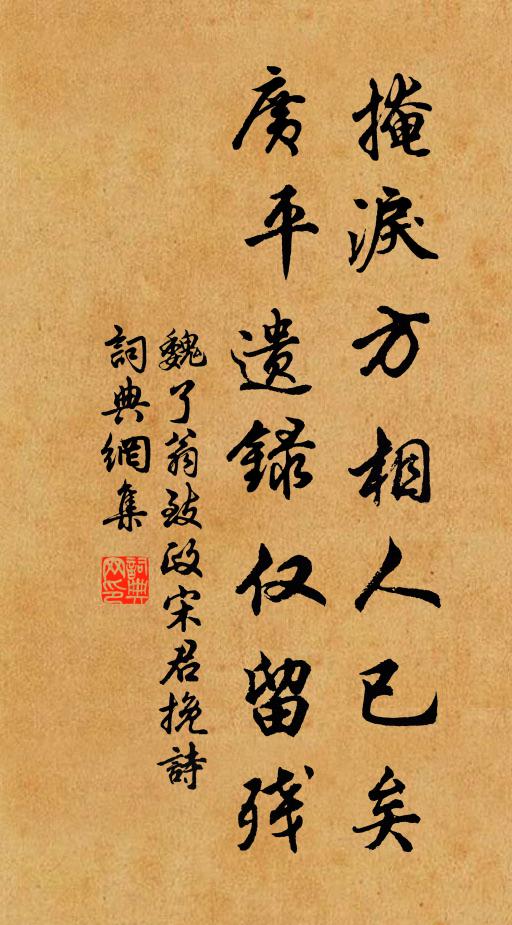 掩淚方相人已矣
廣平遺錄仅留残
魏了翁致政宋君挽詩
詞典網集
詞典网印